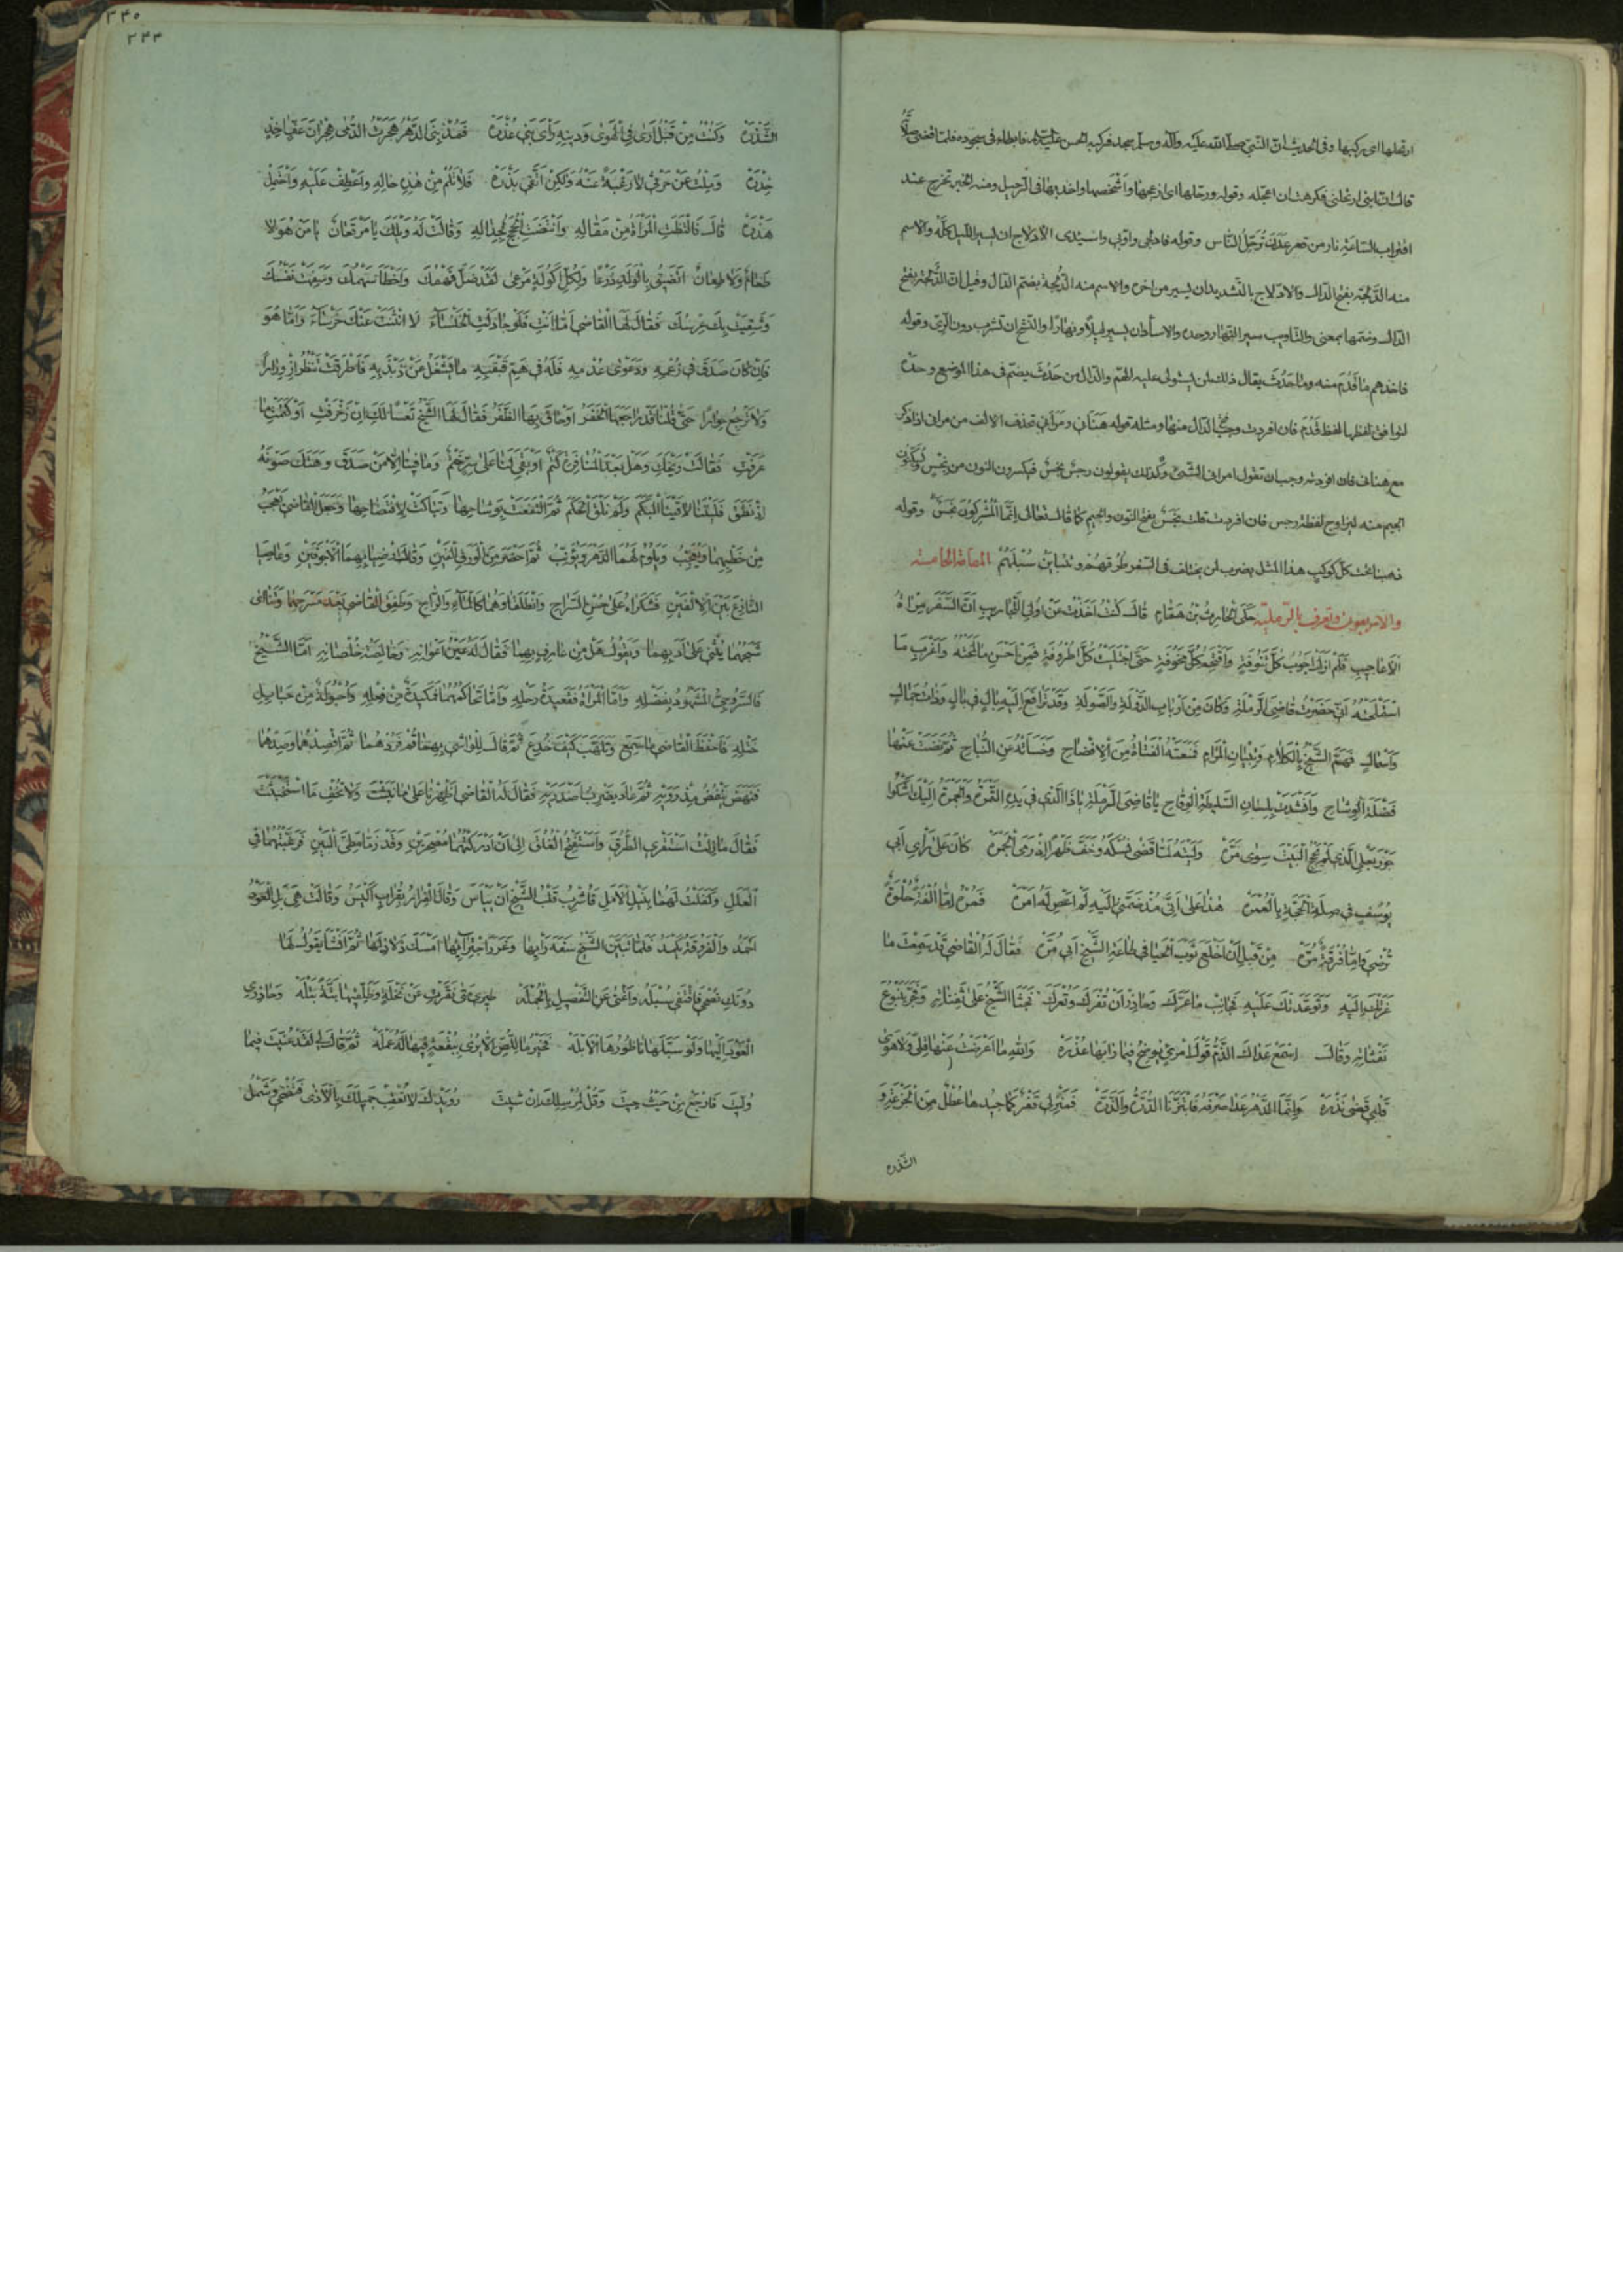 ارتحلها اى ركبها وفى الحديث ان النبى صلى الله عليه وآله وسلم سجد فركبه الحسن عليه السلام فابطاء فى سجوده فلما قضى صلاته
قال ان ابنى ارتحلنى فكرهت ان اعجله وقوله ورحلها اى ازعجها واشخصها واخذ بها فى الرحيل ومنه الخبر تخرج عند
اقتراب الساعة نار من قعر عدن تُرحّل الناس وقوله فادلجى واوّبى واسئدى الادلاج ان يسير الليل كلّه والاسم
منه الدَّلجة بفتح الدال والادّلاج بالتشديد ان يسير من اخره والاسم منه الدُّلجة بضم الدال وقيل ان الدلجة بفتح
الدال وضمها بمعنى والتاويب سير النهار وحده والاسئاد ان يسير ليلاً ونهارًا والنشح ان تشرب دون الرّى وقوله
فاخذهم ما قَدُم منه وما حَدُث يقال ذلك لمن يستولى عليه الهم والدال من حَدُث يضم فى هذا الموضع وحده
ليوافق لفظها لفظ قَدُم فان افردت وجب فتح الدال منها ومثله قوله هنانى ومرانى تحذف الالف من مرانى اذا ذكر
مع هنانى فان افردته وجب ان تقول امرانى الشئ وكذلك يقولون رجس نجس فيكسرون النون من نجس ويسكنون
الجيم منه ليزاوج لفظة رجس فان افردت قلت نَجَس بفتح النون والجيم كما قال تعالى انما المشركون نجس وقوله
ذهبنا تحت كل كوكب هذا المثل يضرب لمن يختلف فى السفر طرقهم وتتباين سُبلهم المقامة الخامسة
والاربعون وتعرف بالرملية حكى الحارث بن همّام قال كنت اخذت عن اولى التجاريب ان السفر مراة
الاعاجيب فلم ازل اجوب كل تنوفة واقتحم كل مخوفة حتى اجتليت كل اطروفة فمن احسن ما لمحته واغرب ما
استملحته انى حضرت قاضى الرملة وكان من ارباب الدولة والصولة وقد ترافع اليه بال فى بال وذات جمال
واسمال فهمّ الشيخ بالكلام وتبيان المرام فمنعته الفتاة من الافصاح وخسأته عن النباح ثم نضت عنها
فضلة الوشاح وانشدت بلسان السليطة الوقاح يا قاضى الرملة يا ذا الذى فى يده التمرة والجمرة اليك اشكوا
جور بعلى الذى لم يحجج البيت سوى مرّة وليته لمّا قضى نسكه وخفّ ظهرًا اذ رمى الجمرة كان على رأى ابى
يوسف فى صلة الحجة بالعمرة هذا على انى مذ ضمنى اليه لم اعص له امرة فمره امّا الفة حلوة
تُرضى وامّا فرقة مرّة من قبل ان اخلع ثوب الحيا فى طاعة الشيخ ابى مرّة فقال له القاضى قد سمعت ما
عزتك اليه وتوعدتك عليه فجانب ما عرّك وحاذر ان تفرك وتعرك فجثا الشيخ على ثفناته وفجّر ينبوع
نفثاته وقال اسمع عداك الذم قول امرئ يوضح فيما رابها عذره والله ما اعرضت عنها قلًى ولا هوى
قلبى قضى نذره وانما الدهر عدا صرفه فابتزّنا الدرة والذرّة فمنزلى قفر كما جيدها عُطل من الجزعة و
الشّذره
٢٤٠
٢٤٤
الشّذرة وكنت من قبل ارى فى الهوى ودينه رأى بنى عذرة فمذ نبى الدهر هجرت الدمى هجران عفّ اخذ
حذره وملت عن حرثى لا رغبة عنه ولكن اتقى بذره فلا تلم من هذه حاله واعطف عليه واحتمل
هذره قال فالتظت المرأة من مقاله وانتضت الحجج لجداله وقالت له ويلك يا مرقعان يا من هو لا
طعام ولا طعان اتضيق بالولد ذرعا ولكل اكولة مرعى لقد ضلّ فهمك واخطأ سهمك وسفهت نفسك
وشقيت بك عرسك فقال لها القاضى امّا انت فلو جادلت الخنساء لانثنت عنك خرساء وامّا هو
فان كان صدق فى زعمه ودعوى عدمه فله فى همّ قبقبه ما يشغل عن ذبذبه فاطرقت تنظر ازورارًا
ولا ترجع حوارًا حتى قلنا قد راجعها الخفر او حاق بها الظفر فقال لها الشيخ تعسًا لك ان زخرفت او كتمت ما
عرفت فقالت ويحك وهل بعد المنافرة كتم او بقى لنا على سر ختم وما فينا الا من صدق وهتك صونه
اذ نطق فليتنا لاقينا البكم ولم نلق الحكم ثم التفعت بوشاحها وتباكت لافتضاحها وجعل القاضى يعجب
من خطبهما ويعجّب ويلوم لهما الدهر ويؤنب ثم احضر من الورق الفين وقال ارضيا بهما الاجوفين وعاصيا
النازغ بين الالفين فشكراه على حسن السراح وانطلقا وهما كالماء والراح وطفق القاضى بعد مسرحهما وتنائى
شبحهما يُثنى على ادبهما ويقول هل من عارف بهما فقال له عين اعوانه وخالصة خلصانه امّا الشيخ
فالسروجى المشهود بفضله وامّا المرأة فقعيدة رحله وامّا تحاكمهما فمكيدة من فعله واحبولة من حبايل
ختله فاحفظ القاضى ما سمع وتلهب كيف خدع ثم قال للواشى بهما قم فردهما ثم اقصدهما وصدهما
فنهض ينفض مذرويه ثم عاد يضرب اصدريه فقال له القاضى اظهرنا على ما نبثت ولا تُخف ما استخبثت
فقال ما زلت استقرى الطرق واستفتح الغلق الى ان ادركتهما مصحرين وقد زمّا مطىّ البين فرغبتهما فى
العلل وكفلت لهما بنيل الامل فاشرب قلب الشيخ ان ييأس وقال الفرار بقراب اكيس وقالت هى بل العود
احمد والفروقة يكمد فلما تبين الشيخ سفه رايها وغرر اجترائها امسك ذلاذلها ثم انشأ يقول لها
دونك نصحى فاقتفى سبله واغنى عن التفصيل بالجمله طيرى متى نقرت عن نخلة وطلّقيها بتة بتله وحاذرى
العود اليها ولو سبّلها ناطورها الابله فخير ما للّص لا يُرى ببقعة فيها له عمله ثم قال لى لقد عنّيت فيما
وُليت فارجع من حيث جيت وقل لمرسلك ان شيت رويدك لا تعقب جميلك بالاذى فتضحى وشمل